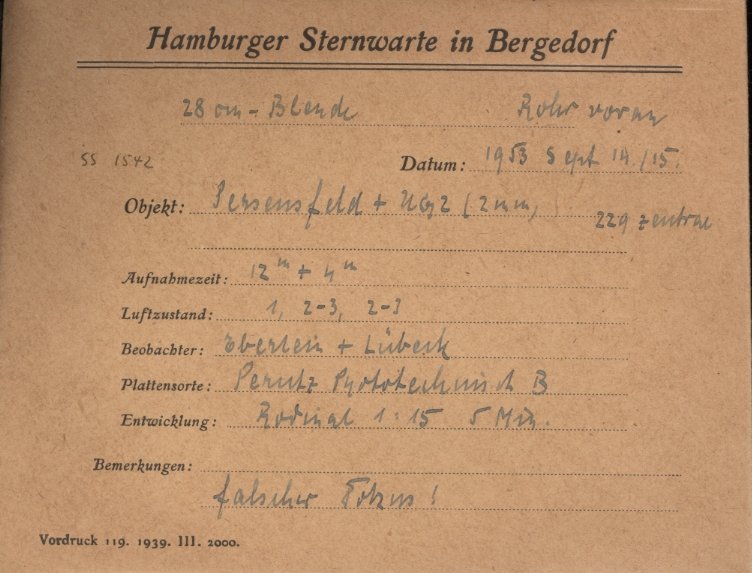 Hamburger Sternwarte in Bergedorf
28 cm - Blende Rohr voran
SS 1542 Datum: 1953 Sept 14./15.
Objekt: Perseusfeld + UG2 (2mm) 229 zentral
Aufnahmezeit: 12ᵐ + 4ᵐ
Luftzustand: 1, 2-3, 2-3
Beobachter: Eberlein + Lübeck
Plattensorte: Perutz Phototechnisch B
Entwicklung: Rodinal 1:15 5 Min.
Bemerkungen:
falscher Fokus!
Vordruck 119. 1939. III. 2000.